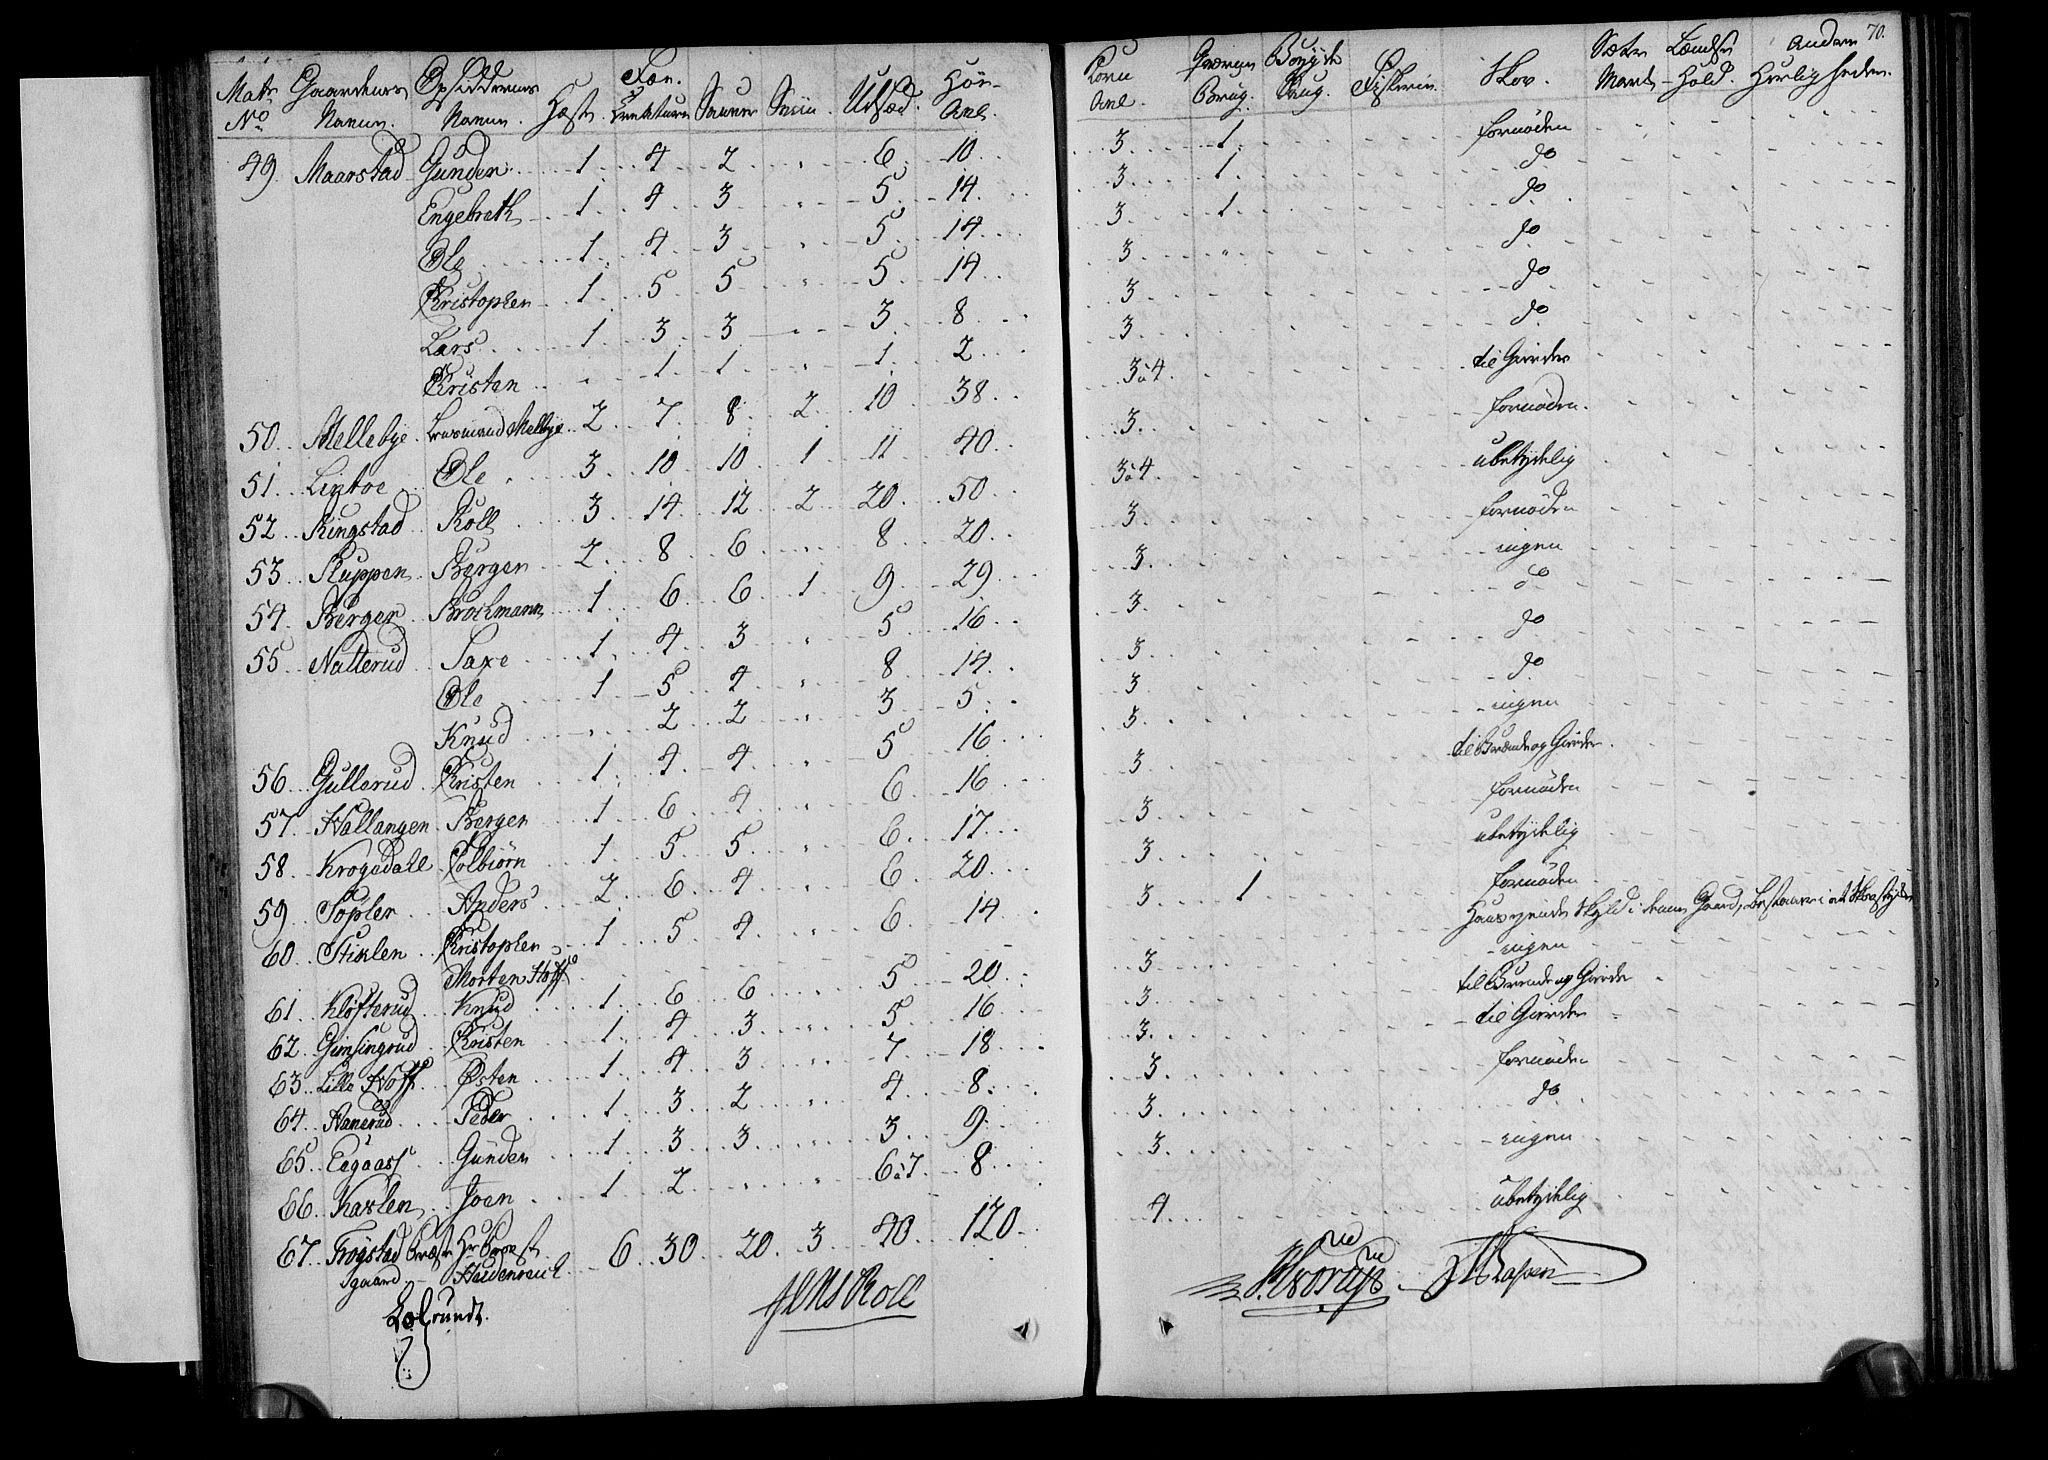 70.
Matr No Gaardenes Navne. Opsiddernes Navne. Heste. Fæe-Creaturer Sauer Sviin Udsæd. Høe-Avl. Korn Avl. Qværne Brug. Bøigde Saug. Fiskerie. Skov. Sæter Mark Lændse-Hold. Andere Herligheder.
49. Maarstad Gunder 1 4 2 " 6 10 3 1. fornøden
Engebreth 1 4 3 " 5 14 3 1. do
Ole 1 4 3 " 5 14 3 1 do
Kristopher 1 5 5 " 5 14 3 " do
Lars 1 3 3 " 3 8 3 do
Kristen " 1 1 " 1 2 3 do
50. Mellebye Melbye 2 7 8 2 10 38 3 à 4. til Gierder
51. Lintoe Ole 3 10 10 1 11 40 3 fornøden.
52. Ringstad Roll 3 14 12 2 20 50 3 à 4. ubetydelig
53. Ruppen Berger 2 8 6 " 8 20 3 fornøden
54. Berger Brochmann 1 6 6 1 9 29 3 ingen
55. Natterud Saxe 1 4 3 " 5 16 3 do
Ole 1 5 4 " 8 14 3 do
Knud " 2 2 " 3 5 3 do
56. Gullerud Kristen 1 4 4 " 5 16 3 ingen
57. Hallangen Berger 1 6 4 " 6 16 3 til Brænde og Gierder.
58. Krogsdahl Colbiørn 1 5 5 " 6 17 3 fornøden
59. Sopler Anders 2 6 4 " 6 20 3 ubetydelig
60. Stiklen Kristopher 1 5 4 " 6 14 3 1 fornøden
Morten Hoff Skyld i denne Gaard, bestaaer i at
61. Kløfterud Knud 1 6 6 5 20 3 ingen
62. Gimsingrud Kristen 1 4 3 " 5 16 3 til Brænde og Gierde
63. Lille Hoff Østen 1 4 3 " 7 18 3 til Gierder
64. Hanerud Peder 1 3 2 " 4 8 3 fornøden
65. Eegaass Gunder 1 3 3 " 3 9 3 do
66. Karlen Joen 1 2 " " 6 à 7 8 3 ingen
67. Trøgstad Præstegaard Hr Provst Heidenreich 6 30 20 3 40 120 4 ubetydelig
Roll